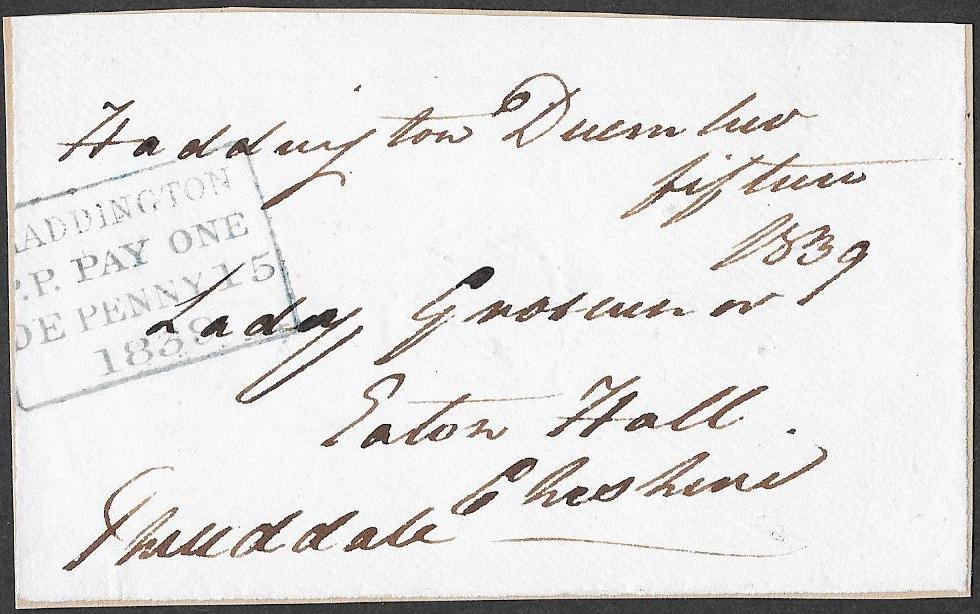 Haddington December
fifteen
1839
ADDINGTON
P.P. PAY ONE
DE PENNY 15
1839
Lady Grosvenor
Eaton Hall.
Cheshire
Tweeddale